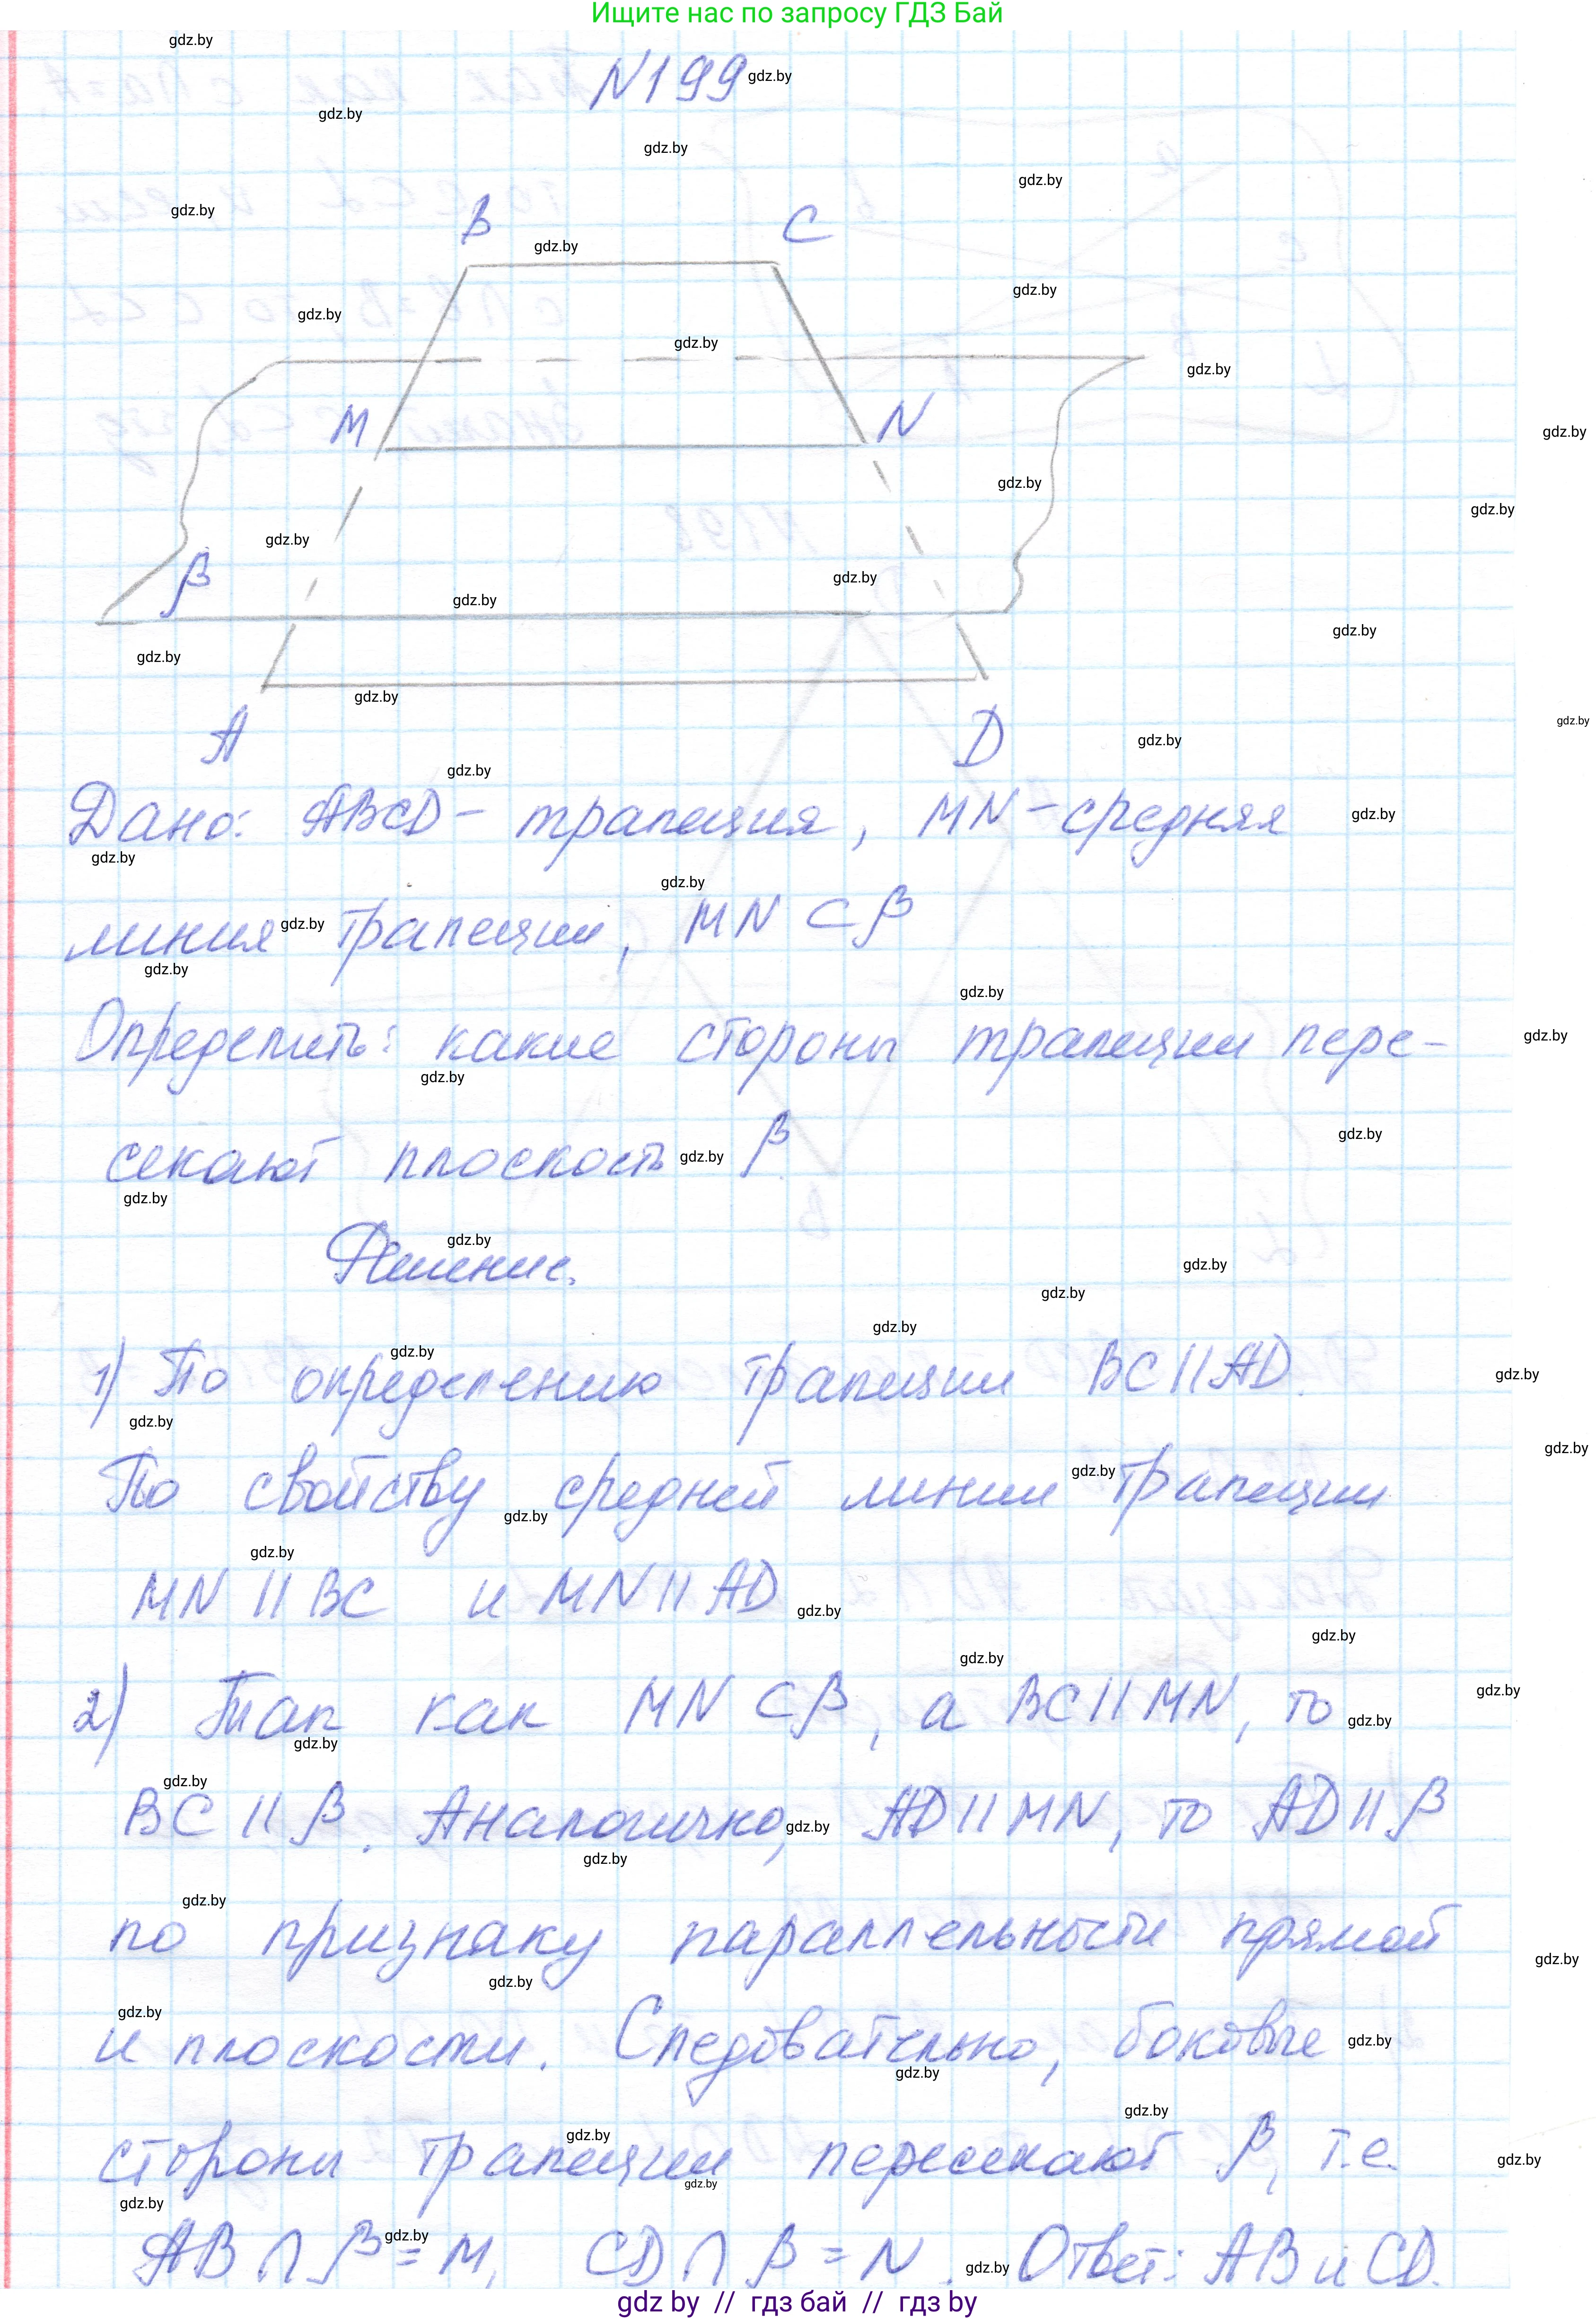 Ищите нас по запросу ГДЗ Бай
N199
B C
M N
β
A D
Дано: ABCD - трапеция, MN - средняя
линия трапеции, MN ⊂ β
Определить: какие стороны трапеции пере-
секают плоскость β
Решение.
1) По определению трапеции BC || AD.
По свойству средней линии трапеции
MN || BC и MN || AD
2) Так как MN ⊂ β, а BC || MN, то
BC || β. Аналогично, AD || MN, то AD || β
по признаку параллельности прямой
и плоскости. Следовательно, боковые
стороны трапеции пересекают β, т.е.
AB ∩ β = M, CD ∩ β = N. Ответ: AB и CD.
gdz by // гдз бай // гдз by